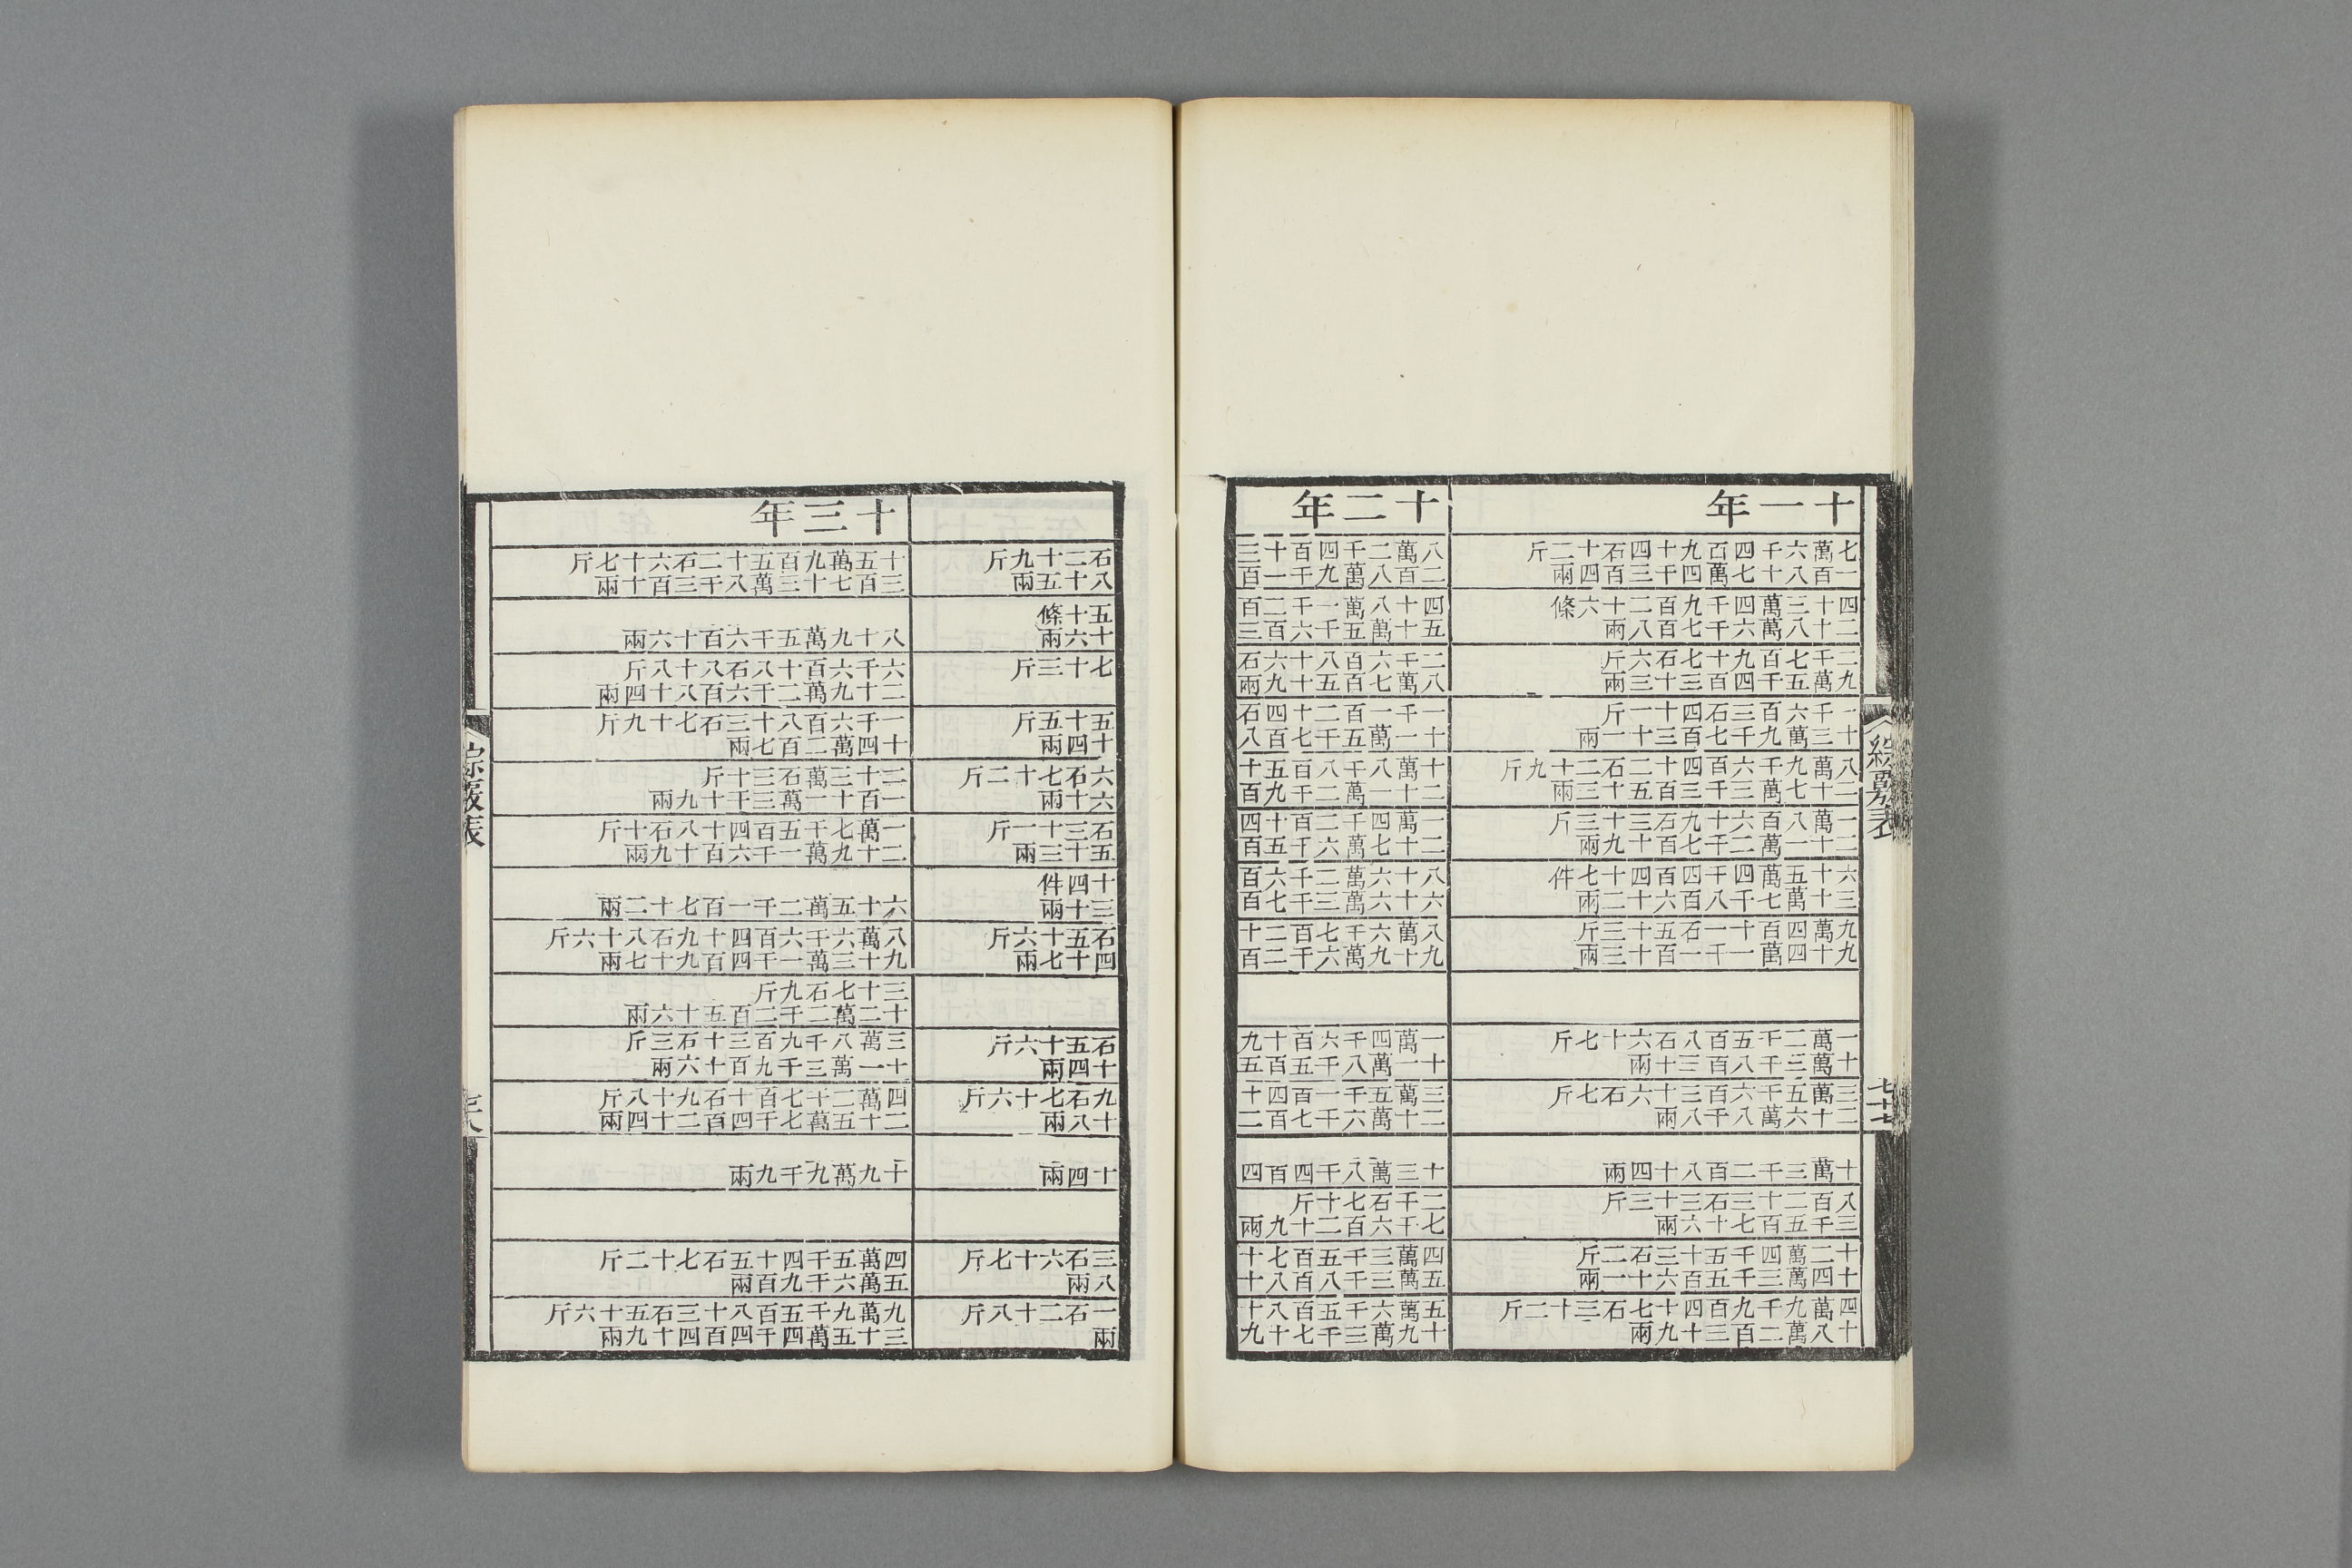 十一年
七萬六千四百九十四石十二斤
一百八十七萬四千三百四兩
四十三萬四千九百二十六條
二十八萬六千七百八兩
二千七百九十七石六斤
九萬五千四百三十三兩
一千六百三石四十一斤
十三萬九千七百三十一兩
八萬九千六百四十二石二十九斤
二十七萬三千三百五十三兩
一萬八百六十九石三十三斤
二十一萬二千七百十九兩
六十五萬四千四百四十七件
三十萬七千八百六十二兩
九萬四百十一石五十三斤
九十四萬一千一百十三兩
一萬二千五百八石六十七斤
十萬三千八百三十兩
三萬五千六百三十六石七斤
二十六萬八千八兩
十萬三千二百八十四兩
八百二十三石三十三斤
三千五百七十六兩
十二萬四千五十三石二斤
十四萬三千五百六十一兩
四萬九千九百四十七石三十二斤
十八萬二百三十九兩
十二年
八萬二千四百十三
二百八萬九千一百
四十八萬一千二百
五十萬五千六百三
二千六百八十六石
八萬七百五十九兩
一千一百二十四石
十一萬五千七百八
十萬八千八百五十
二十一萬二千九百
一萬四千二百十四
二十七萬六千五百
八十六萬二千六百
六十六萬三千七百
八萬六千七百二十
九十九萬六千二百
一萬四千六百十九
十一萬八千五百五
三萬五千一百四十
二十萬六千七百二
十三萬八千四百四
二千石七十斤
七千六百二十九兩
四萬三千五百七十
五萬三千八百八十
五萬六千五百八十
十九萬三千七十九
七十七
石二十九斤
八十五兩
五十條
十六兩
七十三斤
五十五斤
十四兩
六石七十二斤
六十兩
石三十一斤
五十三兩
十四件
三十兩
石五十六斤
四十七兩
石五十六斤
十四兩
九石七十六斤
十八兩
十四兩
三石六十七斤
八兩
一石二十八斤
兩
十三年
十五萬九百五十二石六十七斤
三百七十三萬八千三百十兩
八十九萬五千六百十六兩
六千六百十八石八十八斤
二十九萬二千六百八十四兩
一千六百八十三石七十九斤
十四萬二百七兩
二十三萬石三十斤
一百十一萬三千十九兩
一萬七千五百四十八石十斤
二十九萬一千六百十九兩
六十五萬二千一百七十二兩
八萬六千六百四十九石八十六斤
九十三萬一千四百九十七兩
三十七石九斤
十二萬二千二百五十六兩
三萬八千九百三十石三斤
十一萬三千九百十六兩
四萬二千七百十石九十八斤
二十五萬七千四百二十四兩
十九萬九千九兩
四萬五千四十五石七十二斤
五萬六千九百兩
九萬九千五百八十三石五十六斤
三十五萬四千四百四十九兩